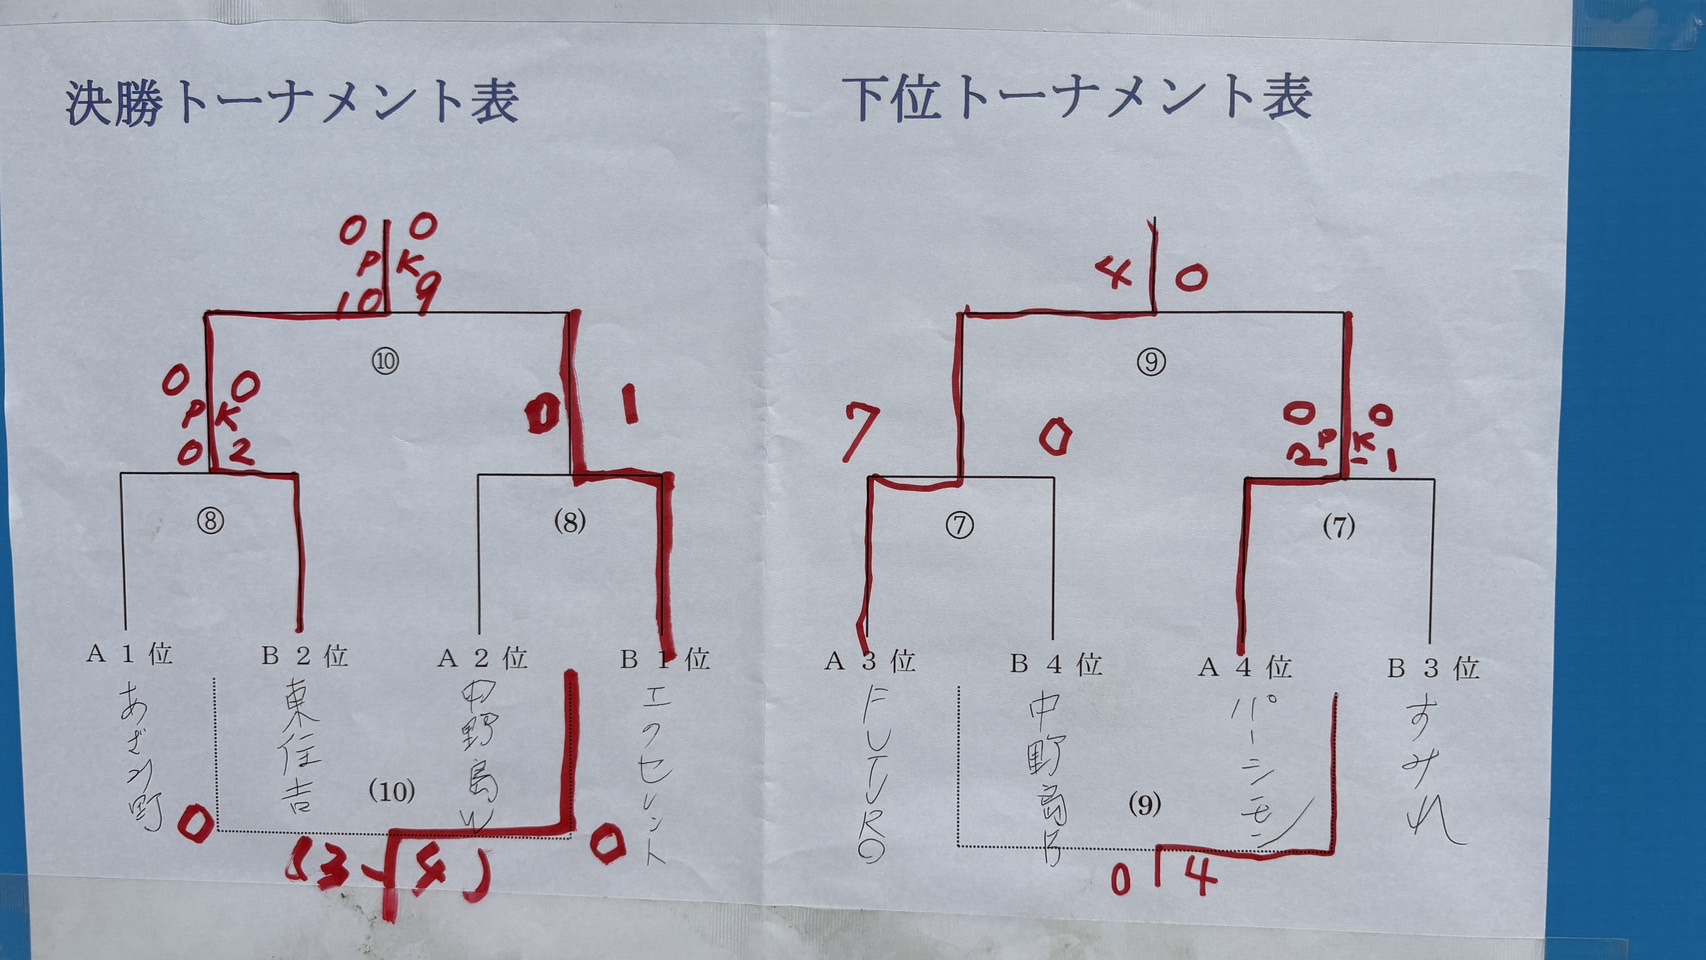 決勝トーナメント表
0 0
P K
10 9
⑩
0 0
P K
0 2
0 1
⑧ (8)
A1位 B2位 A2位 B1位
あざみ野
東住吉
中野島W
エクセレント
(10)
0 0
(3-4)
下位トーナメント表
4 0
⑨
7 0
0 0
P K
2-1
⑦ (7)
A3位 B4位 A4位 B3位
FUTURO
中野島B
パーシモン
すみれ
(9)
0 4